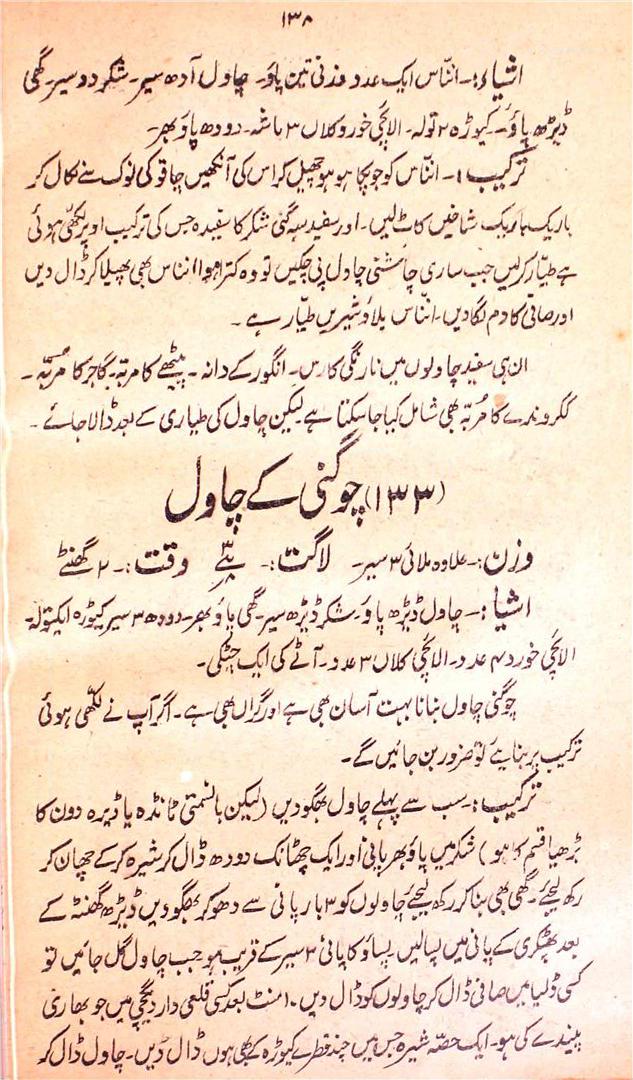 ۱۳۸
اشیاء:۔ انناس ایک عدد وزنی تین پاؤ۔ چاول آدھ سیر۔ شکر دو سیر۔ گھی
ڈیڑھ پاؤ۔ کیوڑہ ۲ تولہ۔ الائچی خورد و کلاں ۳ ماشہ۔ دودھ پاؤ بھر۔
ترکیب ۱۔ انناس کو جو پکا ہو ہو چھیل کر اس کی آنکھیں چاقو کی نوک سے نکال کر
باریک باریک شاخیں کاٹ لیں۔ اور سفید سہ گنی شکر کا سفیدہ جس کی ترکیب اوپر لکھی ہوئی
ہے طیّار کرلیں جب ساری چاشنی چاول پی چکیں تو وہ کترا ہوا انناس بھی پھیلا کر ڈال دیں
اور صافی کا دم لگا دیں۔ انناس پلاؤ شیریں طیّار ہے۔
ان ہی سفید چاولوں میں نارنگی کا رس۔ انگور کے دانہ۔ پیٹھے کا مربّہ۔ گاجر کا مربّہ۔
ککروندے کا مُربّہ بھی شامل کیا جا سکتا ہے لیکن چاول کی طیاری کے بعد ڈالا جائے۔
(۱۳۳) چوگنی کے چاول
وزن:۔ علاوہ ملائی ۳ سیر۔ لاگت:۔ وقت:۔ ۲ گھنٹے
اشیا:۔ چاول ڈیڑھ پاؤ۔ شکر ڈیڑھ سیر۔ گھی پاؤ بھر۔ دودھ ۳ سیر کیوڑہ ایکتولہ۔
الائچی خورد ۴ عدد۔ الائچی کلاں ۳ عدد۔ آٹے کی ایک چٹکی۔
چوگنی چاول بنانا بہت آسان بھی ہے اور گراں بھی ہے۔ اگر آپ نے لکھی ہوئی
ترکیب پر بنایئے تو ضرور بن جائیں گے۔
ترکیب:۔ سب سے پہلے چاول بھگو دیں (لیکن بانسمتی ٹانڈہ یا ڈیرہ دون کا
بڑھیا قسم کا ہو) شکر میں پاؤ بھر پانی اور ایک چھٹانک دودھ ڈال کر شیرہ کر کے چھان کر
رکھ لیجئے۔ گھی بھی بنا کر رکھ لیجئے چاولوں کو ۳ بار پانی سے دھو کر بھگو دیں ڈیڑھ گھنٹہ کے
بعد پھٹکری کے پانی میں پسا لیں پساؤ کا پانی ۳ سیر کے قریب ہو جب چاول گل جائیں تو
کسی ڈلیا میں صافی ڈال کر چاولوں کو ڈال دیں۔ ۱۰ منٹ بعد کسی قلعی دار دیگچی میں جو بھاری
پیندے کی ہو۔ ایک حصّہ شیرہ جس میں چند قطرے کیوڑہ کے بھی ہوں ڈال دیں۔ چاول ڈال کر